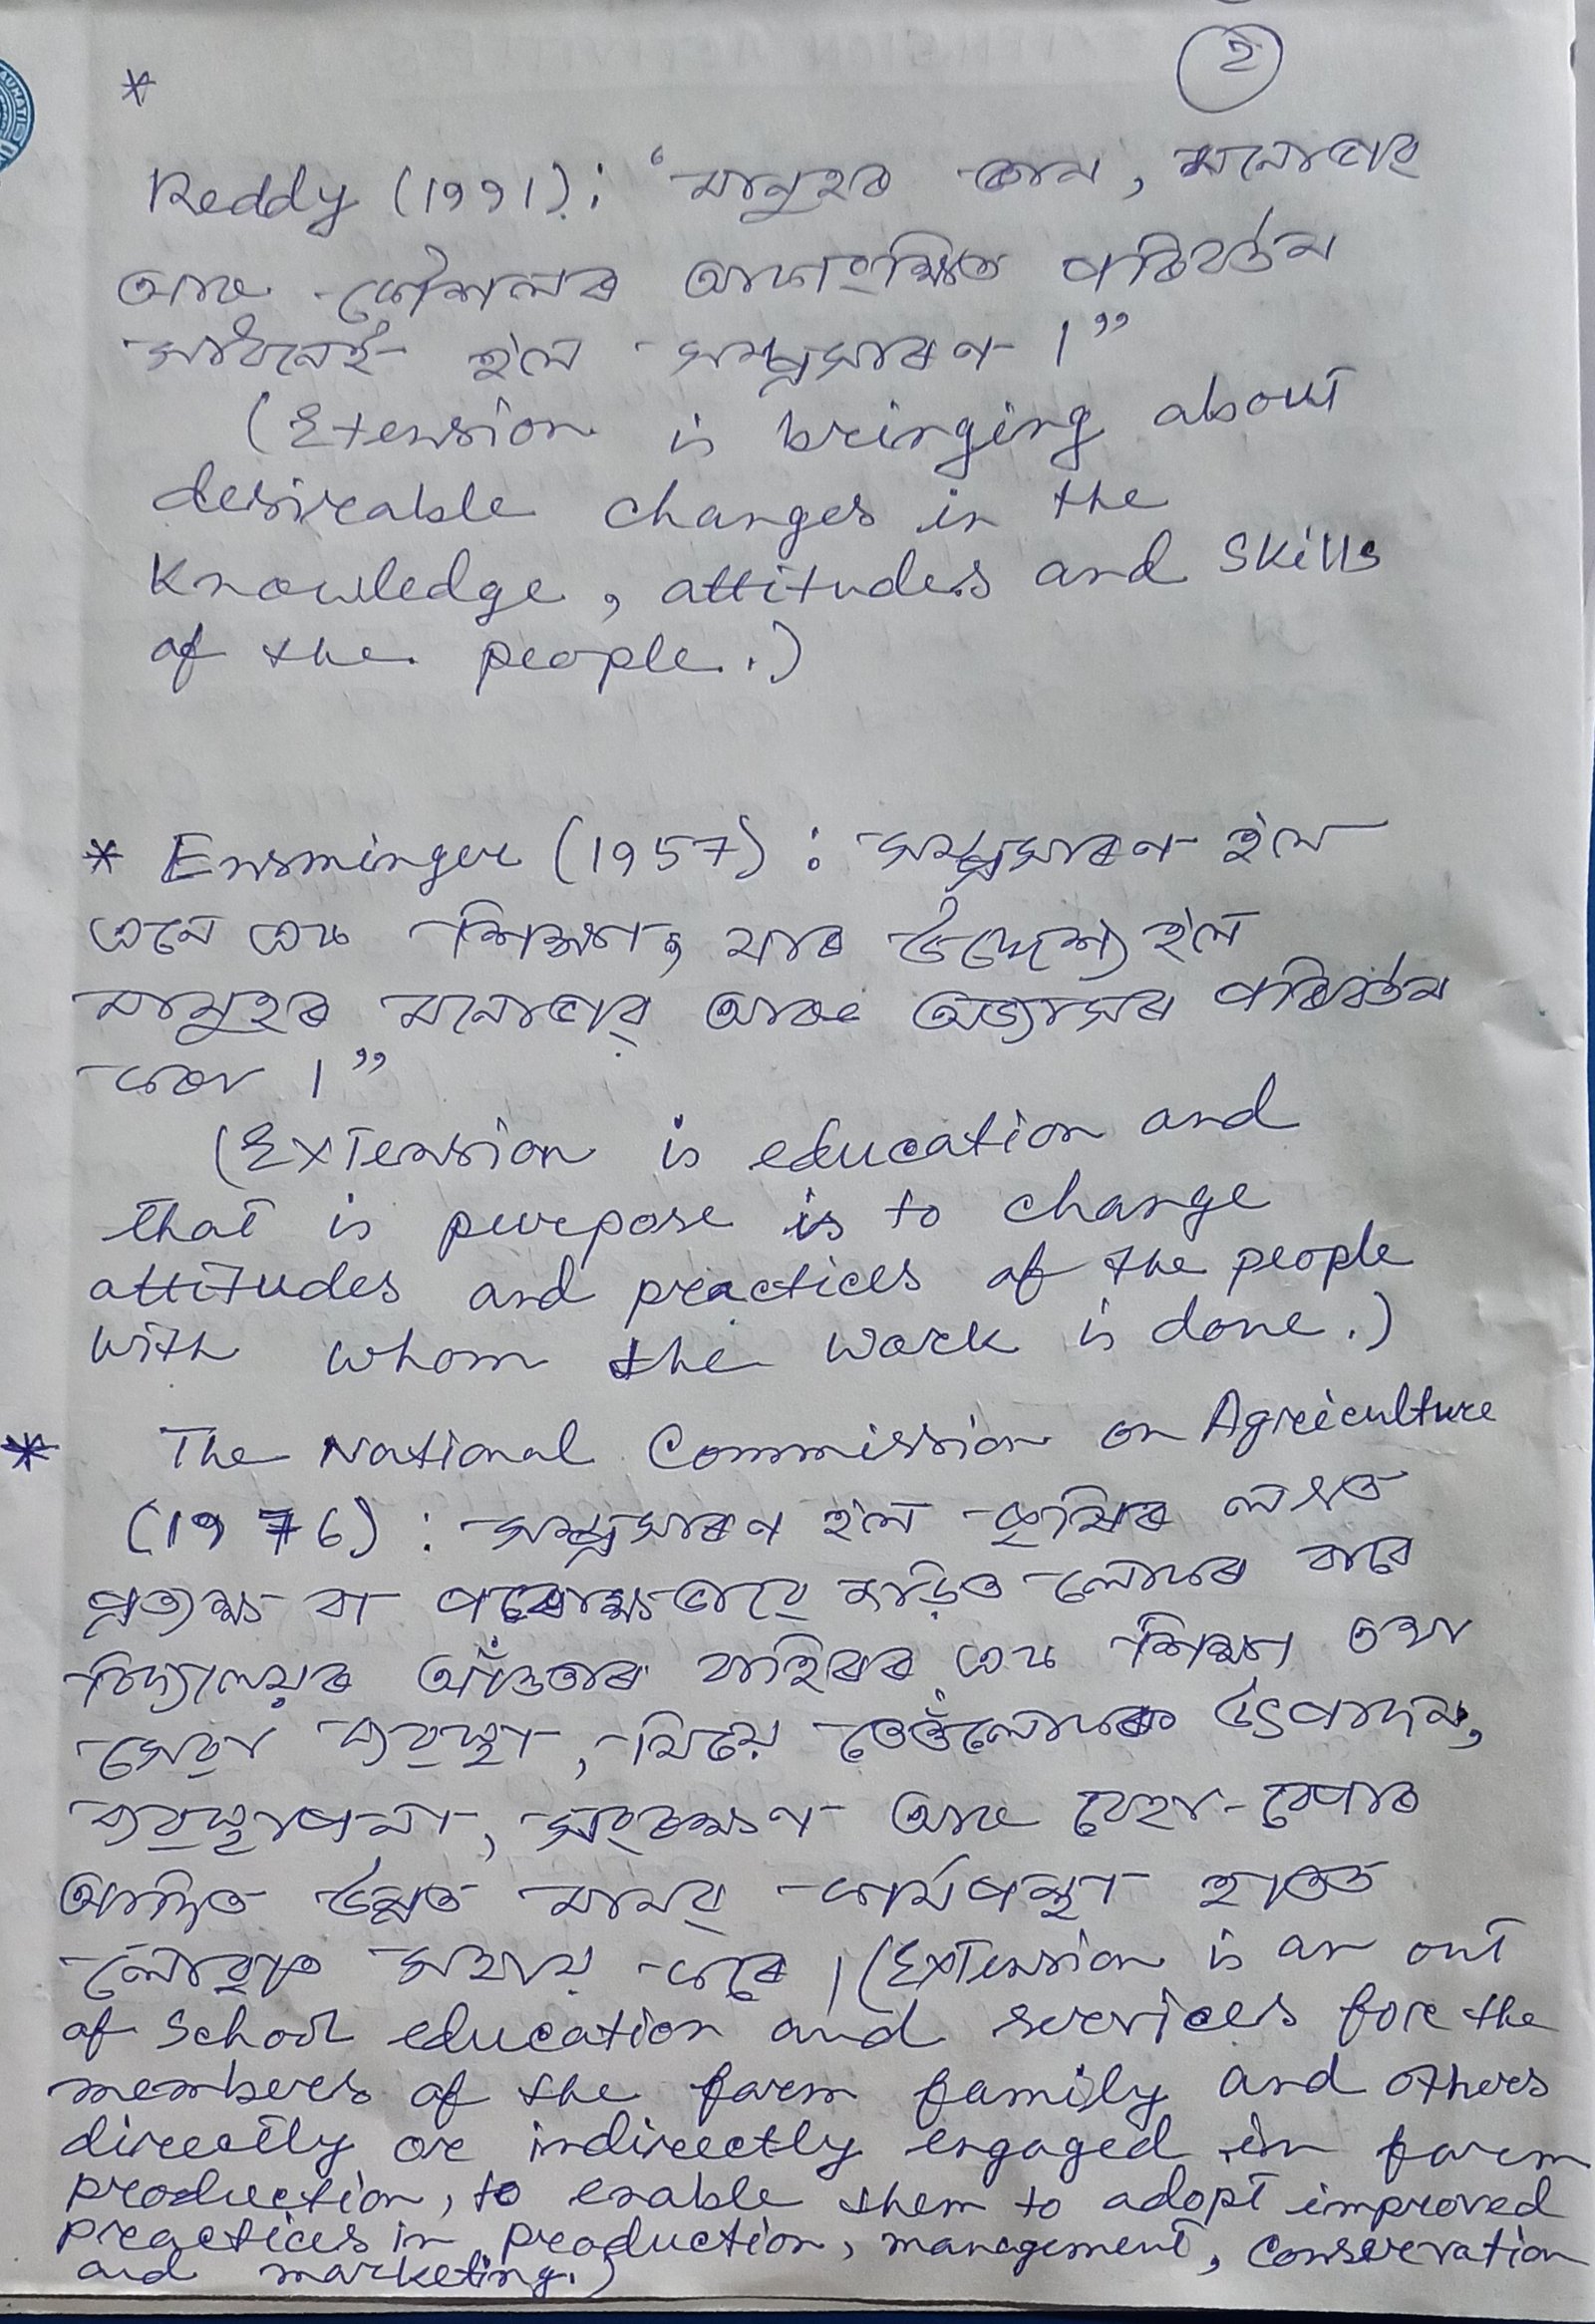 ২
*
Reddy (1991): ‘মানুহৰ জ্ঞান, মনোভাৱ
আৰু কৌশলৰ আকাংক্ষিত পৰিবৰ্তন
সাধনেই হ'ল সম্প্ৰসাৰণ ।”
(Extension is bringing about
desireable changes in the
Knowledge, attitudes and Skills
of the people.)
* Ensminger (1957): সম্প্ৰসাৰণ হ'ল
এনে এক শিক্ষা, যাৰ উদ্দেশ্য হ'ল
মানুহৰ মনোভাৱ আৰু অভ্যাসৰ পৰিবৰ্তন
কৰা ।”
(Extension is education and
that is purpose is to change
attitudes and practices of the people
with whom the work is done.)
* The National Commission on Agriculture
(1976): সম্প্ৰসাৰণ হ'ল কৃষিৰ লগত
প্ৰত্যক্ষ বা পৰোক্ষভাৱে জড়িত লোকৰ বাবে
বিদ্যালয়ৰ আঁতৰৰ বাহিৰৰ এক শিক্ষা তথা
সেৱা ব্যৱস্থা, যিয়ে তেওঁলোকক উৎপাদন,
ব্যৱস্থাপনা, সংৰক্ষণ আৰু বেহা-বেপাৰ
উন্নত মানৰ কাৰ্যপন্থা হাতত
লোৱাত সহায় কৰে। (Extension is an out
of School education and services for the
members of the farm family and others
directly or indirectly engaged in farm
production, to enable them to adopt improved
practices in production, management, conservation
and marketing.)